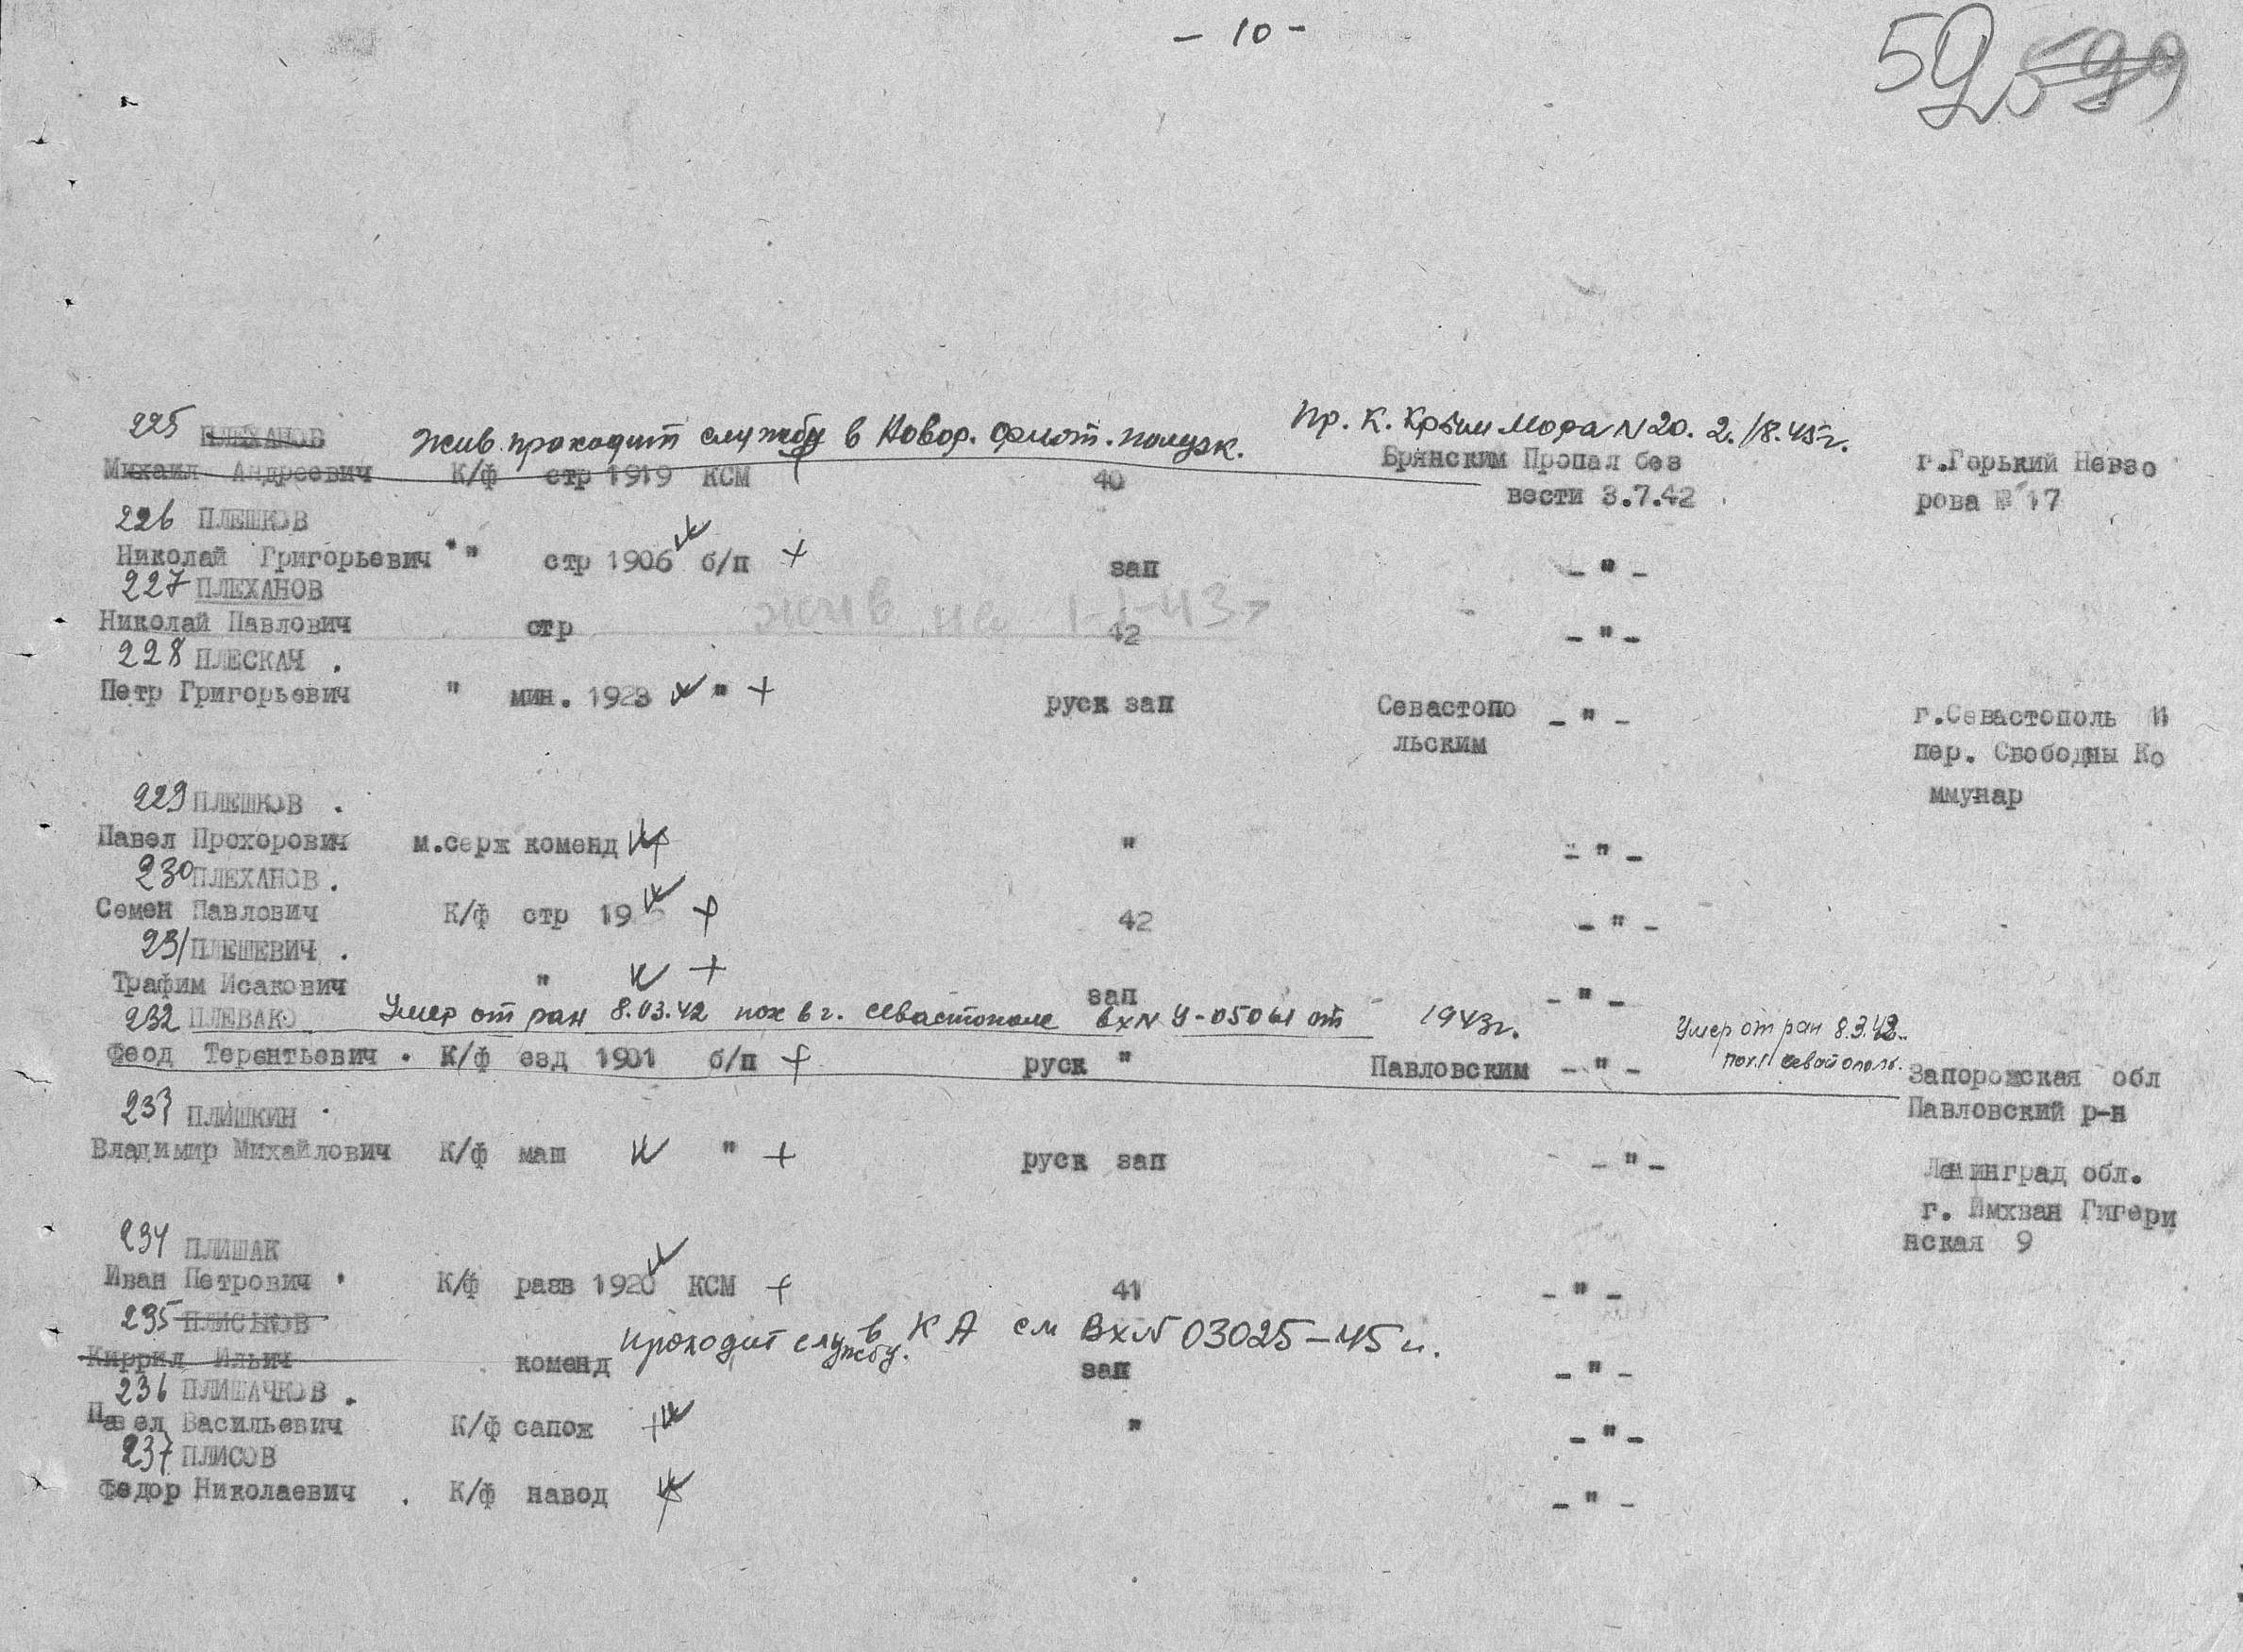 - 10 -
59 599
225 ПЛЕХАНОВ Жив. проходит службу в Новор. флот. полуэк. Пр. К. Крым Мора N 20. 2./8.45г.
Михаил Андреевич К/ф стр 1919 КСМ 40 Брянским Пропал без г.Горький Невзо
вести 3.7.42 рова № 17
226 ПЛЕШКОВ
Николай Григорьевич " стр 1906 б/п + зап - " -
227 ПЛЕХАНОВ
Николай Павлович стр жив на 1-1-43г 42 - " -
228 ПЛЕСКАЧ .
Петр Григорьевич " мин. 1923 " + руск зап Севастопо - " - г.Севастополь
льским пер. Свободны Ко
ммунар
229 ПЛЕШКОВ .
Павел Прохорович м.серж команд " - " -
230 ПЛЕХАНОВ .
Семен Павлович К/ф стр + 42 - " -
231 ПЛЕШЕВИЧ .
Трафим Исакович " + зап - " -
232 ПЛЕВАКО Умер от ран 8.03.42 пох в г. Севастополе вхN У-05061 от 1943г. Умер от ран 8.3.42..
пох.
Феод Терентьевич . К/ф езд 1901 б/п + руск " Павловским - " - Запорожская обл
Павловский р-н
233 ПЛИШКИН .
Владимир Михайлович К/ф маш " + руск зап - " - Ленинград обл.
г. Имхван Гигери
нская 9
234 ПЛИШАК
Иван Петрович . К/ф разв 1920 КСМ + 41 - " -
235 ПЛИСЬКОВ проходит службу в КА см Вх№ 03025-45 г.
Киррил Ильич команд зап - " -
236 ПЛИШАЧКОВ .
Павел Васильевич К/ф сапож + " - " -
237 ПЛИСОВ
Федор Николаевич . К/ф навод - " -